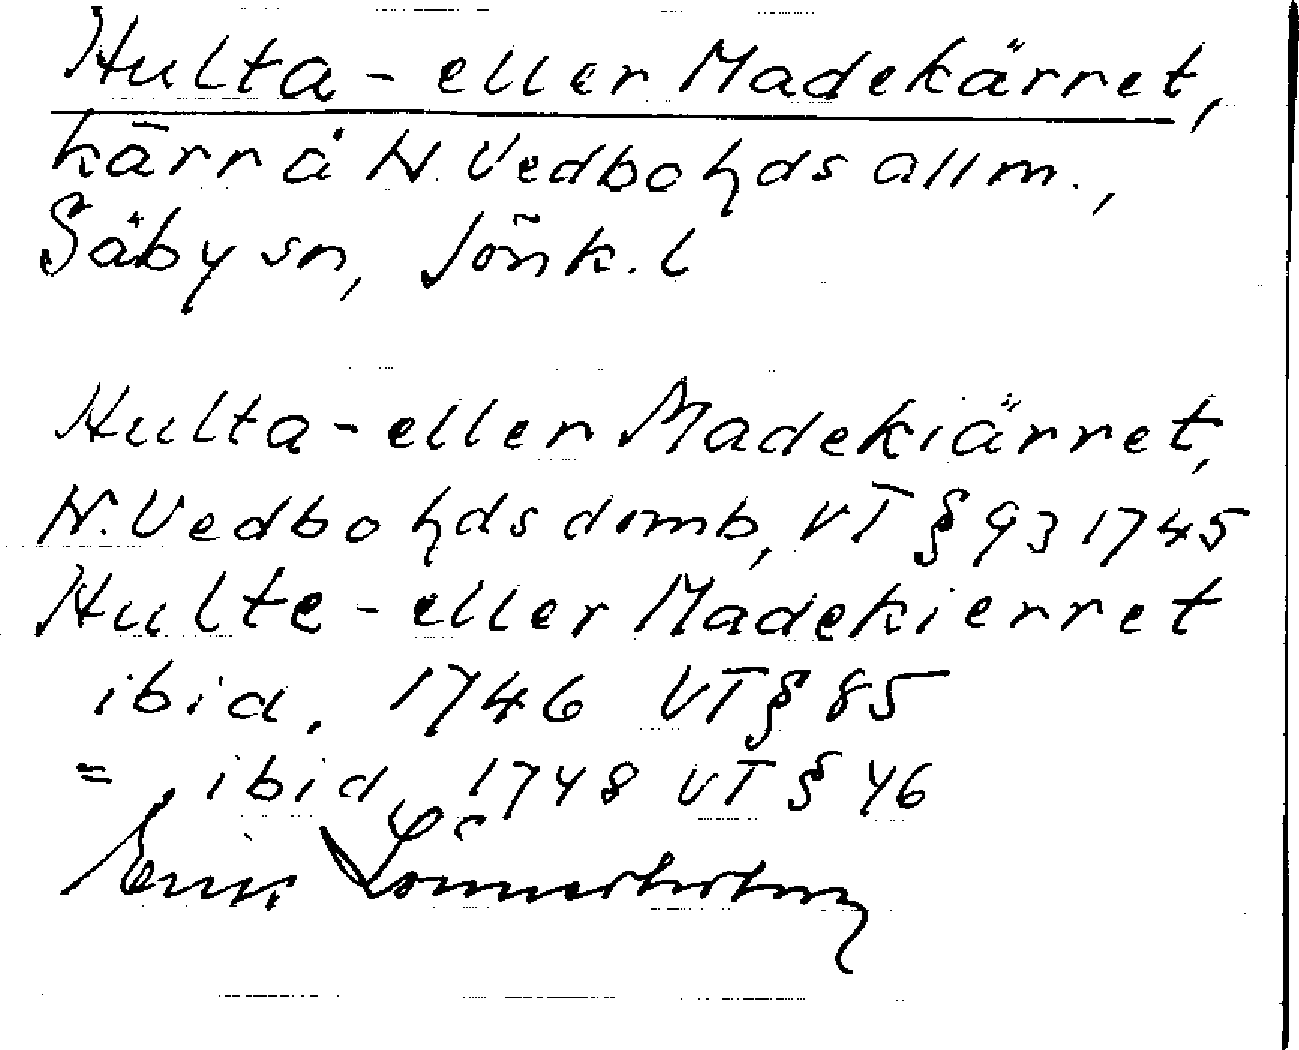 Hulta- eller Madekärret,
kärr å N. Vedbo hds allm.,
Säby sn, Jönk. l
Hulta- eller Madekiärret,
N. Vedbo hds domb, VT § 93 1745
Hulte- eller Madekierret
ibid. 1746 VT § 85
= ibid, 1748 VT § 46